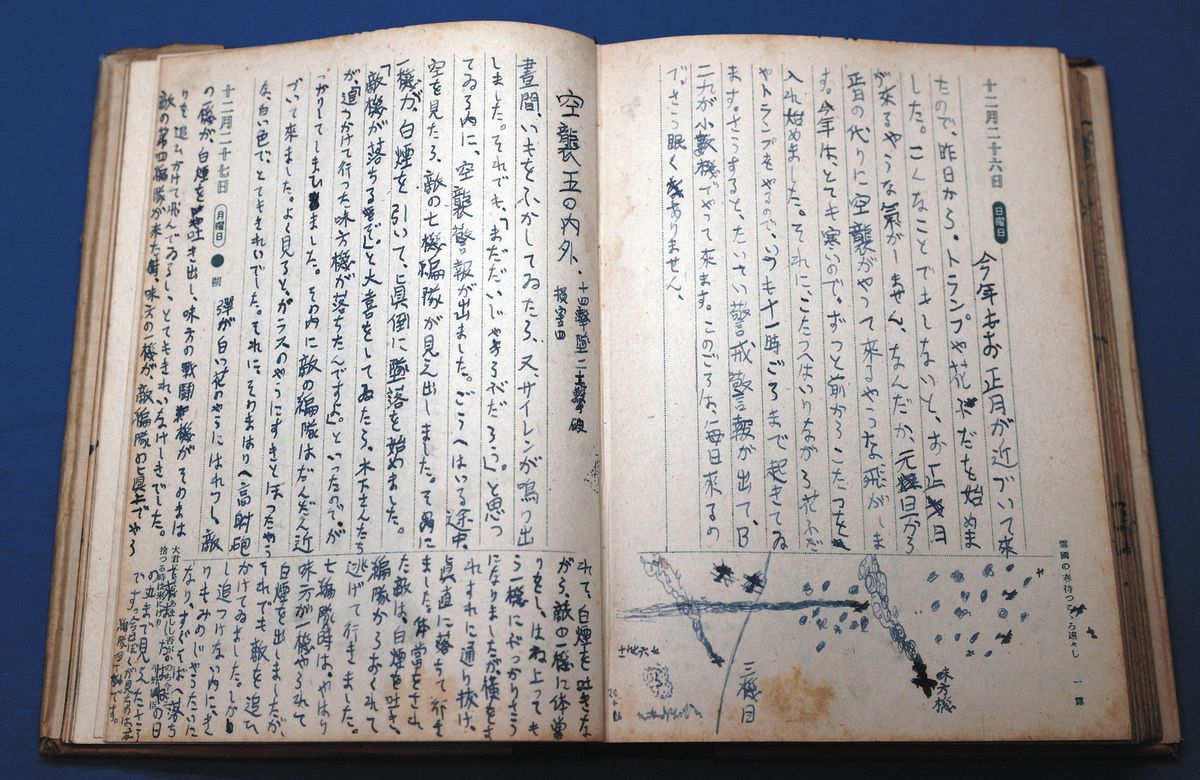 十二月二十六日 日曜日
今年もお正月が近づいて来
たので、昨日から、トランプや花ふだを始めま
した。こんなことでもしないと、お正月
が来るやうな氣がしません、なんだか、元旦から
正月の代りに空襲がやって来さうな がしま
す。今年は、とても寒いので、ずっと前からこたつを
入れ始めました。それに、こたつへはいりながら花ふだ
やトランプをやるので、いつも十一時ごろまで起きてゐ
ます。さうすると、たいてい警戒警報が出て、B
二九が小數機でやって来ます。このごろは、毎日来るの
で、さう眠くありません。
雪國の春待つこゝろ遥々し 一露
味方機
三機目
空襲 の内外・十四撃墜二十 撃破
損害四
晝間、いもをふかしてゐたら、又、サイレンが鳴り出
しました。それでも、「まだだいじゃうぶだらう」と思っ
てゐる内に、空襲警報が出ました。ごうへはいる途中、
空を見たら、敵の七機編隊が見え出しました。その内に
一機が、白煙を引いて、眞倒に墜落を始めました。
「敵機が落ちるぞ」と大喜をしてゐたら、木下さんたち
が、「追つかけて行った味方機が落ちたんですよ」といったのでが
つかりしてしまひました。その内に敵の編隊はだんだん近
づいて来ました。よく見ると、ガラスのやうにすきとほったやう
な白い色で、とてもきれいでした。それに、そのまはりへ高射砲
彈が白い花のやうにはれつし、敵
十二月二十七日 月曜日 朔
の機が、白煙を吐き出し、味方の戰闘機がそのまは
りを追ひかけて飛んでゐるし、とてもきれいなけしきでした。
敵の第四編隊が来た時、味方の一機が、敵編隊の眞上でやら
れて、白煙を吐きな
がら、敵の一機に体當
りをし、はね上っても
う一機にぶっかりさう
になりましたが横をす
れすれに通り抜け、
眞直に落ちて行き
ました。体當をされ
た敵は、白煙を吐き、
編隊からおくれて
逃げて行きました。
七編隊時は、やはり
味方が一機やられて
白煙を出しましたが、
それでも敵を追ひ
かけてゐました。しかし
し追つけない内に、き
りもみのじゃうたいに
なり、すぐそばへ落ち